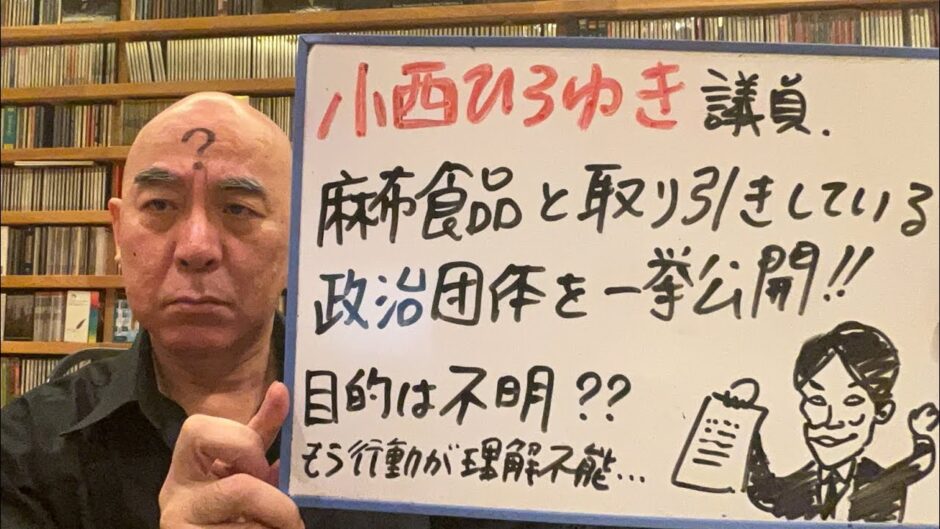 ?
小西ひろゆき 議員.
麻布食品と取り引きしている
政治団体を一挙公開!!
目的は不明??
もう行動が理解不能…